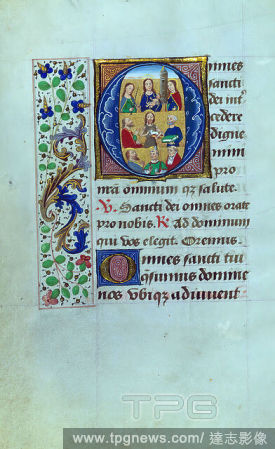 Omnes
sancti
dei int
cedere
digne
mini
pro
mā omnium qz salute.
V. Sancti dei omnes orate
pro nobis. R. Ad dominum
qui vos elegit. Oremus.
Omnes sancti tui
qsumus domine
nos vbiqz adiuuent
TPG
www.tpgnews.com/達志影像